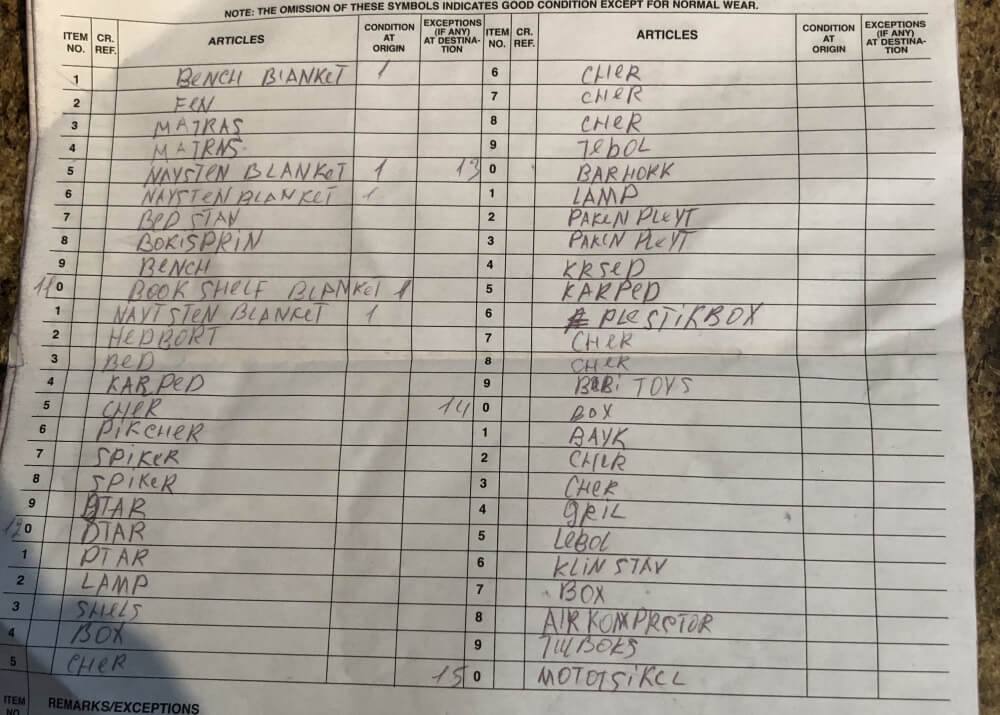 NOTE: THE OMISSION OF THESE SYMBOLS INDICATES GOOD CONDITION EXCEPT FOR NORMAL WEAR.
ITEM NO. CR. REF. ARTICLES CONDITION AT ORIGIN EXCEPTIONS (IF ANY) AT DESTINATION
1 BENCH BLANKET 1
2 FEN
3 MATRAS
4 MATRAS
5 NAYSTEN BLANKET 1
6 NAYSTEN BLANKET 1
7 BED STAV
8 BOKISPRIN
9 BENCH
110 BOOK SHELF BLANKET 1
1 NAYTSTEN BLANKET 1
2 HEDBORT
3 BED
4 KARPED
5 CHER
6 PIKCHER
7 SPIKER
8 SPIKER
9 DTAR
120 DTAR
1 DTAR
2 LAMP
3 SHELS
4 BOX
5 CHER
ITEM NO. CR. REF. ARTICLES CONDITION AT ORIGIN EXCEPTIONS (IF ANY) AT DESTINATION
6 CHER
7 CHER
8 CHER
9 TEBOL
130 BARHOKK
1 LAMP
2 PAKEN PLEYT
3 PAKEN PLEYT
4 KRSED
5 KARPED
6 PLESTIKBOX
7 CHER
8 CHER
9 BEBI TOYS
140 BOX
1 BAYK
2 CHER
3 CHER
4 GRIL
5 LEBOL
6 KLIN STAV
7 BOX
8 AIR KOMPRECTOR
9 TULBOKS
150 MOTOTSIKEL
ITEM NO. REMARKS/EXCEPTIONS